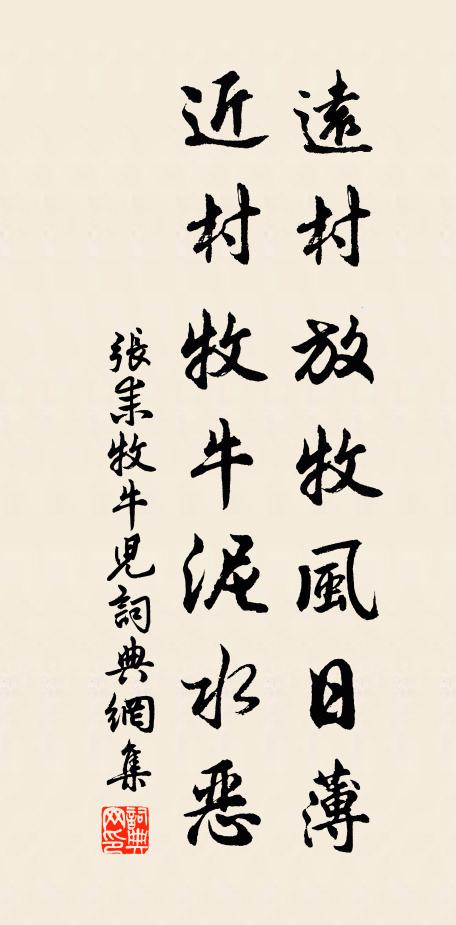 遠村放牧風日薄
近村牧牛泥水惡
張耒牧牛児詞典網集
詞典网印